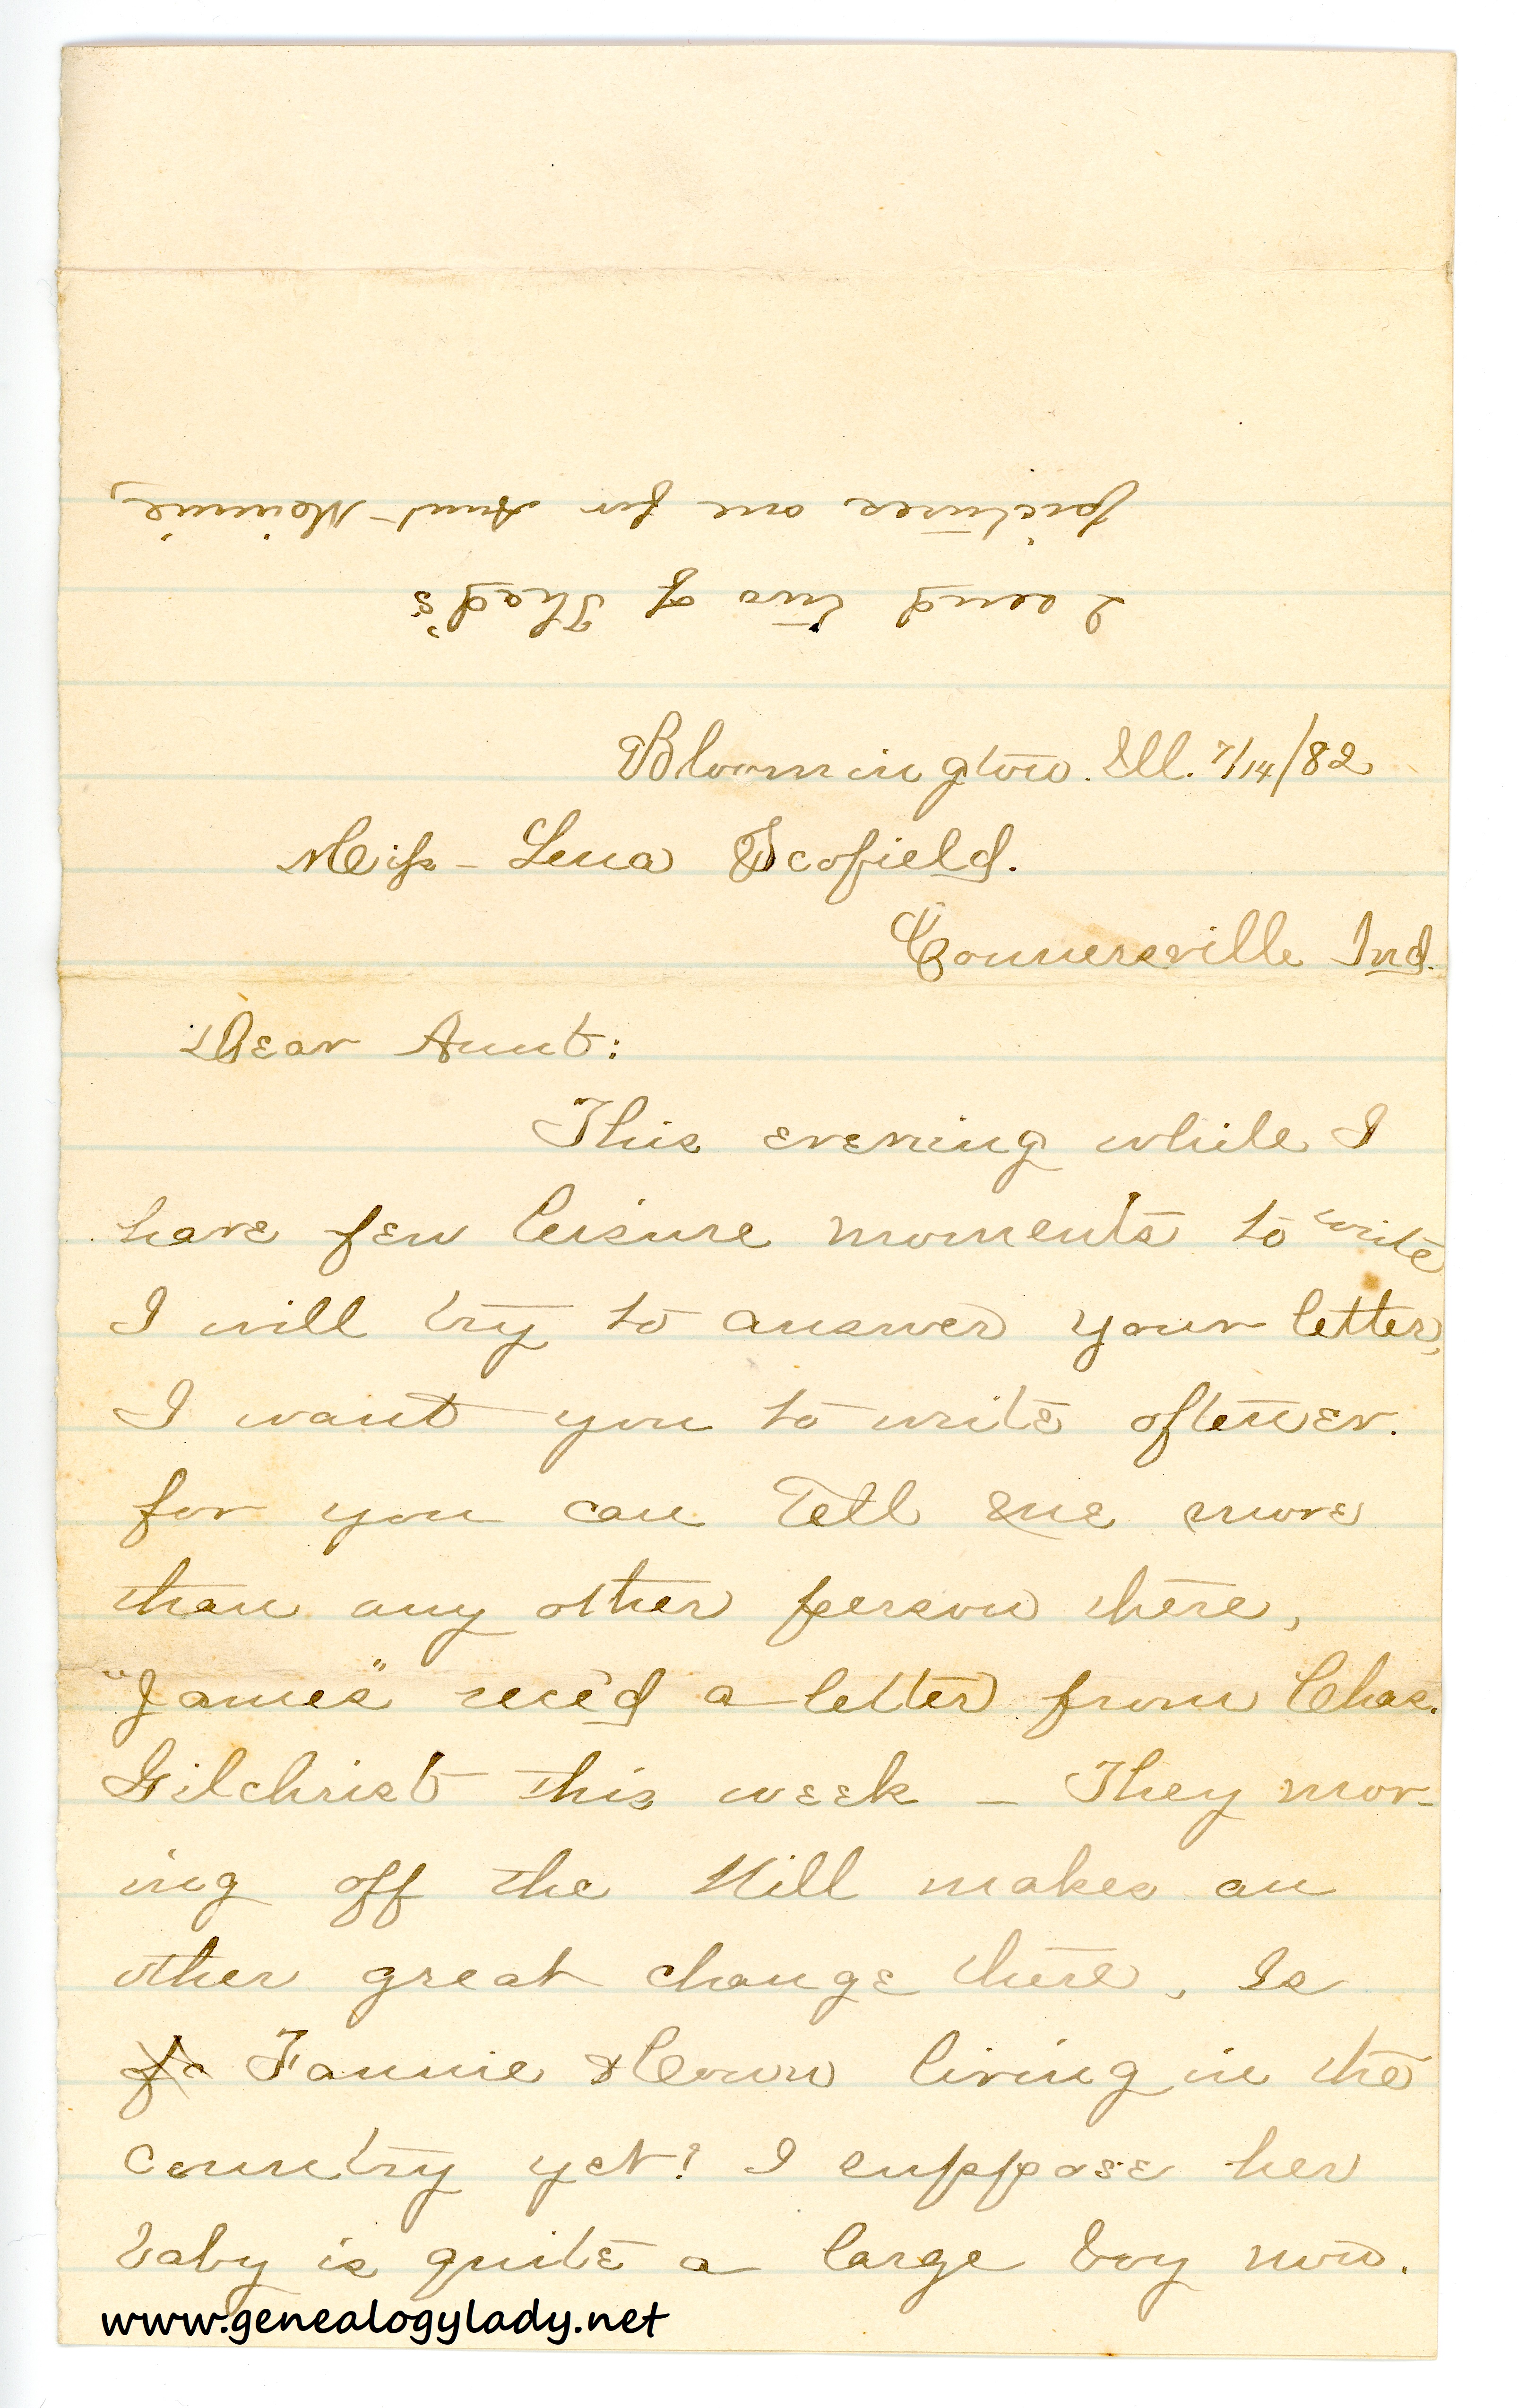 I send two of Thad's
pictures one for Aunt Mominie,
Bloomington. Ill. 7/14/82
Miss - Lena Scofield.
Connersville Ind.
Dear Aunt:
This evening while I
have few leisure moments to write
I will try to answer your letter,
I want you to write oftener.
for you can Tell me more
than any other person there,
"James" rece'd a letter from Chas.
Gilchrist this week – They mov-
ing off the Hill makes an
other great change there, Is
Fannie living in the
country yet? I suppose her
baby is quite a large boy now.
www.genealogylady.net